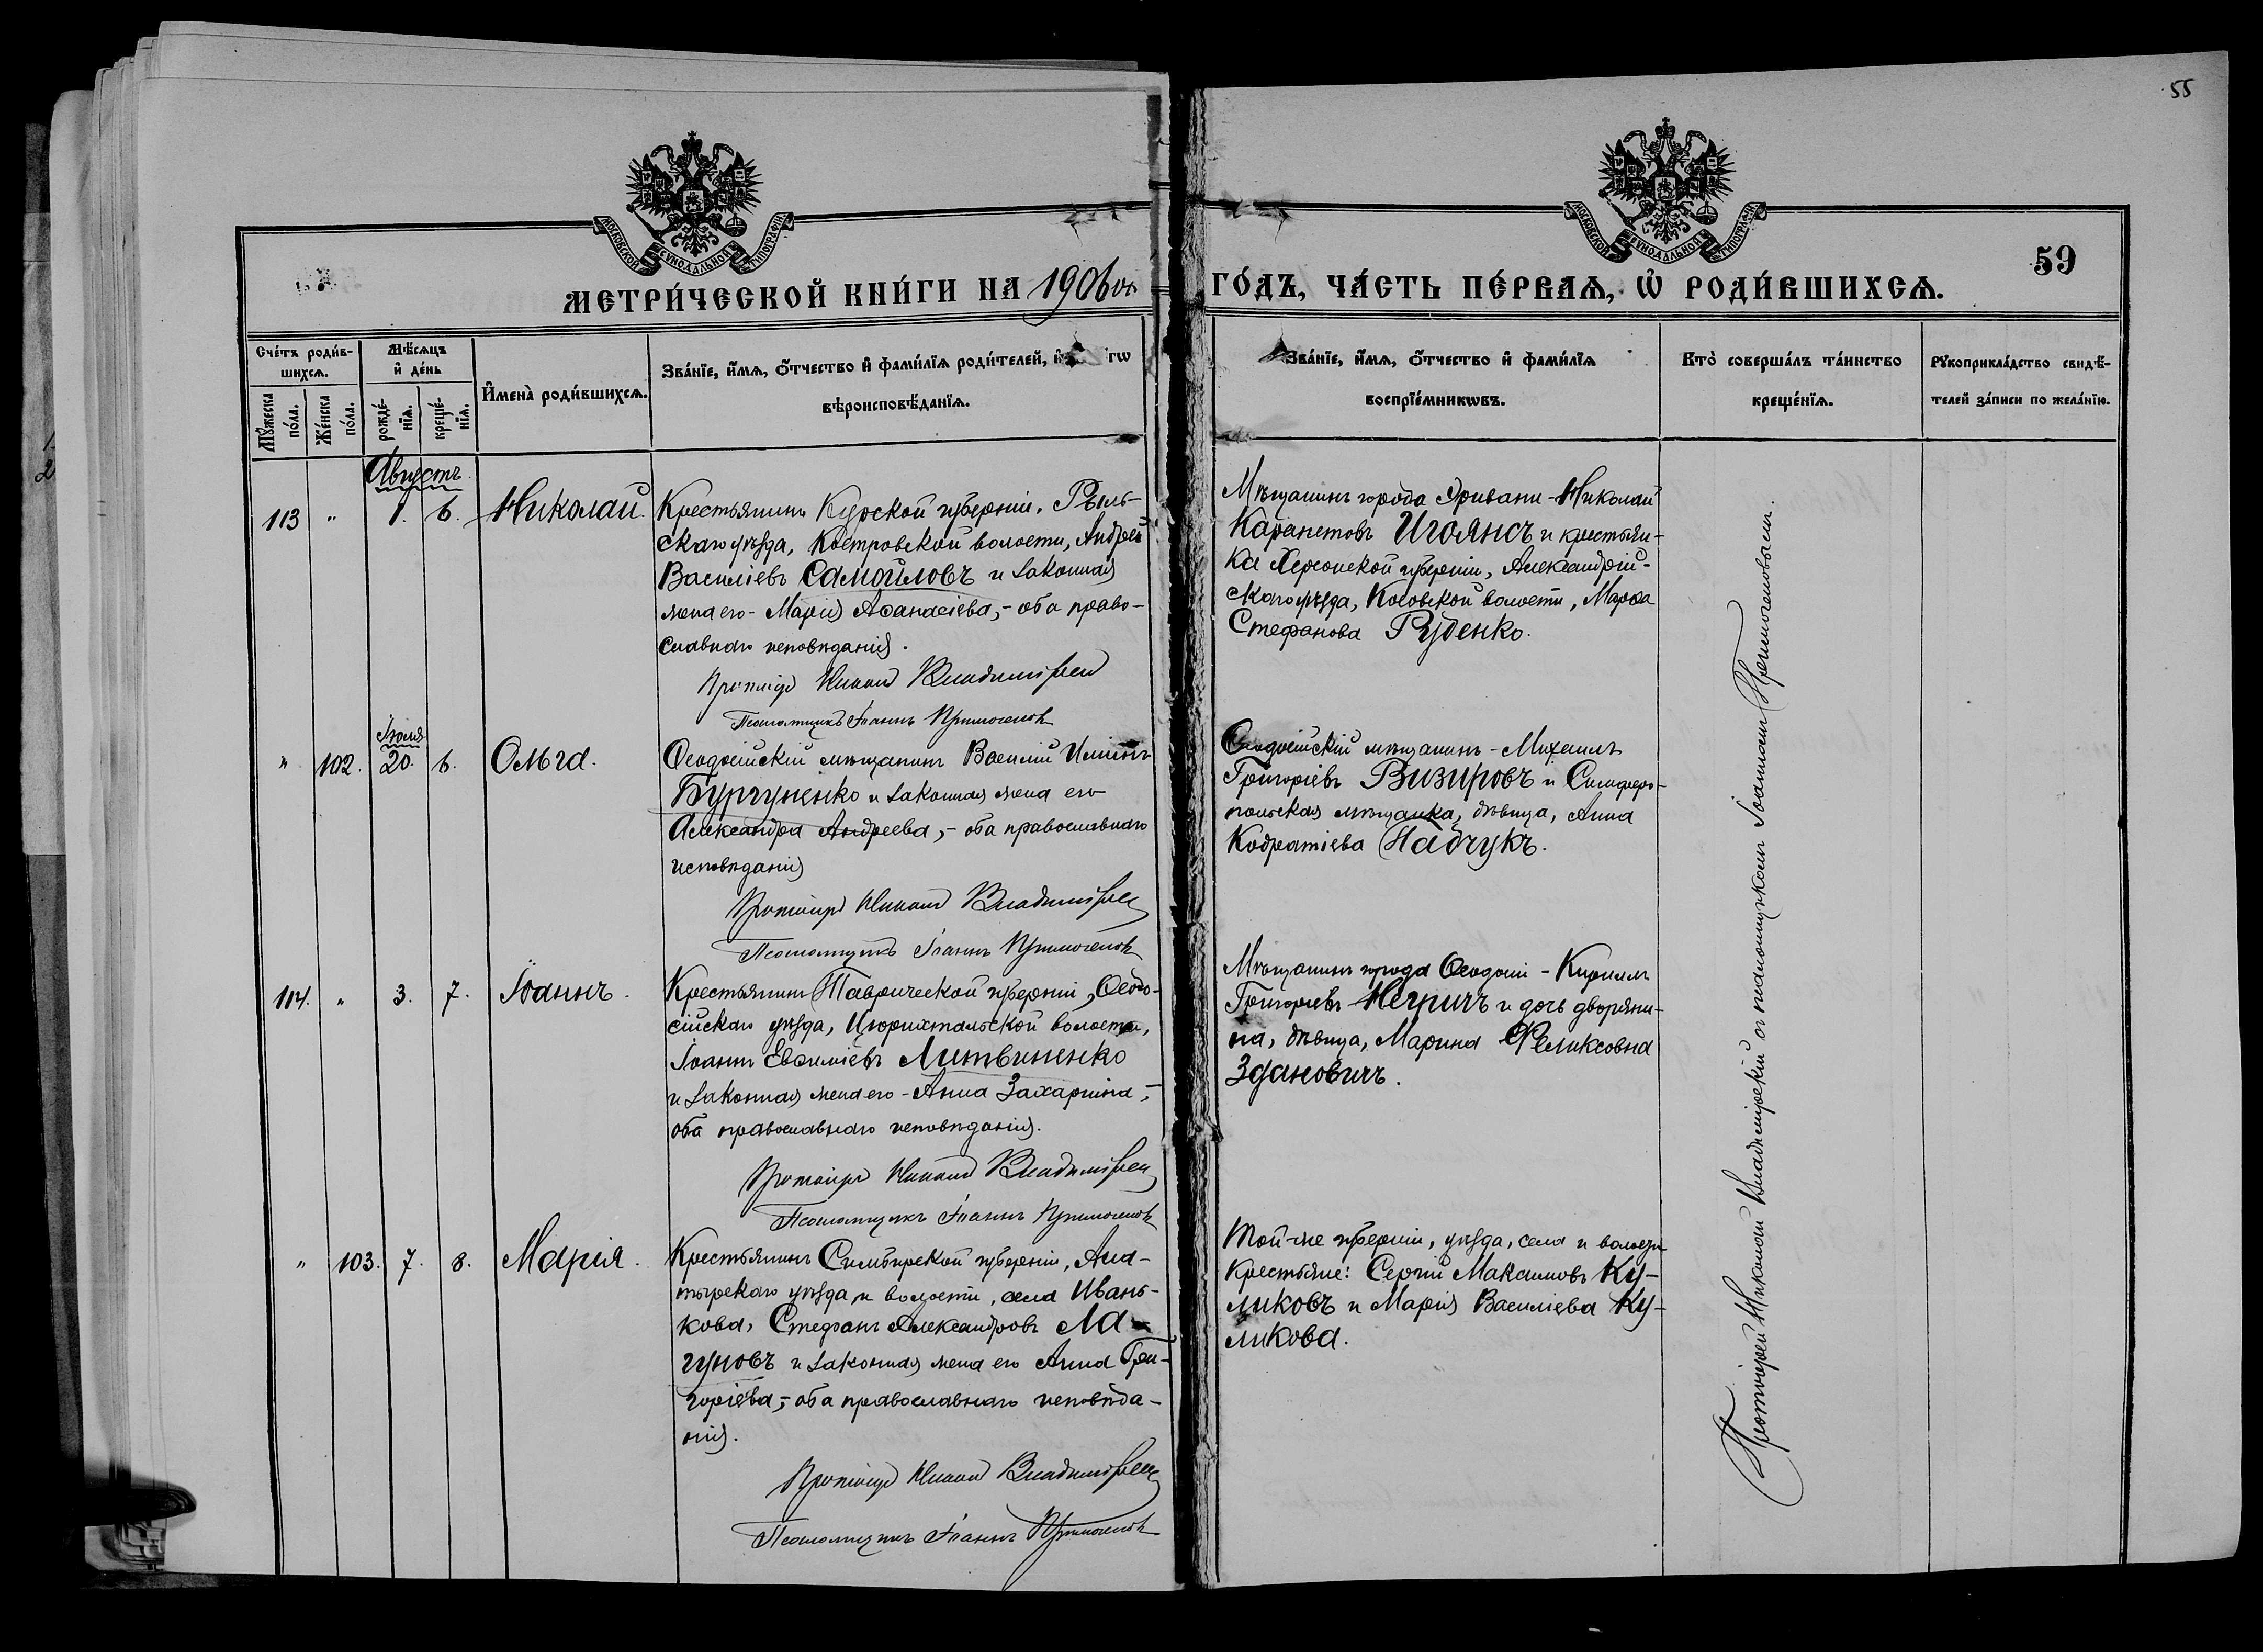 55
МОСКОВСКОЙ СѴНОДАЛЬНОЙ ТИПОГРАФІИ
МОСКОВСКОЙ СѴНОДАЛЬНОЙ ТИПОГРАФІИ
59
МЕТРИ́ЧЕСКОЙ КНИ́ГИ НА 1906 ой ГО́ДЪ, ЧА́СТЬ ПЕ́РВАѦ, Ѡ҆ РОДИ́ВШИХСѦ.
Сче́тъ роди́в-
шихсѧ.
Мꙋ́жеска
по́ла.
Же́нска
по́ла.
Мѣ́сѧцъ
и҆ де́нь
рожде́-
нїѧ.
креще́-
нїѧ.
И҆мена̀ роди́вшихсѧ.
Зва́нїе, и҆́мѧ, ѻ҆́тчество и҆ фами́лїѧ роди́телей, и҆
вѣроисповѣ́данїѧ.
Зва́нїе, и҆́мѧ, ѻ҆́тчество и҆ фами́лїѧ
воспрїе́мникѡвъ.
Кто̀ соверша́лъ та́инство
креще́нїѧ.
Рꙋкоприкла́дство свидѣ́-
телей за́писи по жела́нїю.
Августъ
113 " 1. 6. Николай.
Крестьянинъ Курской губерніи, Рыль-
скаго уѣзда, Костровской волости, Андрей
Василіевъ Самойловъ и законная
жена его - Марія Аѳанасіева, - оба право-
славнаго исповѣданія.
Протоіер Никаноръ Владимірск
Псаломщикъ Іоаннъ Примогеновъ
Мѣщанинъ города Эривани - Николай
Карапетовъ Игоянсъ и крестьян-
ка Херсонской губерніи, Александрій-
скаго уѣзда, Косовской волости, Марѳа
Стефанова Руденко.
Іюля
" 102. 20. 6. Ольга.
Ѳеодосійскій мѣщанинъ Василій Ильинъ
Бургуненко и законная жена его
Александра Андреева, - оба православнаго
исповѣданія
Протоіер Никаноръ Владимірск
Псаломщикъ Іоаннъ Примогеновъ
Ѳеодосійскій мѣщанинъ - Михаилъ
Григоріевъ Визировъ и Симферо-
польская мѣщанка, дѣвица, Анна
Кодратіева Надчукъ.
114. " 3. 7. Іоаннъ.
Крестьянинъ Таврической губерніи, Ѳеодо-
сійскаго уѣзда, Цюрихтальской волости,
Іоаннъ Евѳиміевъ Литвиненко
и законная жена его - Анна Захаріина, -
оба православнаго исповѣданія.
Протоіер Никаноръ Владимірск
Псаломщикъ Іоаннъ Примогеновъ
Мѣщанинъ города Ѳеодосіи - Кириллъ
Григоріевъ Негричъ и дочь дворяни-
на, дѣвица, Марина Феликсовна
Здановичъ.
" 103. 7. 8. Марія.
Крестьянинъ Симбирской губерніи, Ала-
тырскаго уѣзда и волости, села Ивань-
кова, Стефанъ Александровъ Ла-
гуновъ и законная жена его Анна Гри-
горіева, - оба православнаго исповѣда-
нія.
Протоіер Никаноръ Владимірск
Псаломщикъ Іоаннъ Примогеновъ
Той-же губерніи, уѣзда, села и волости
крестьяне: Сергій Максимовъ Ку-
ликовъ и Марія Василіева Ку-
ликова.
Протоіерей Никаноръ Владимірскій съ псаломщикомъ Іоанномъ Примогеновымъ.